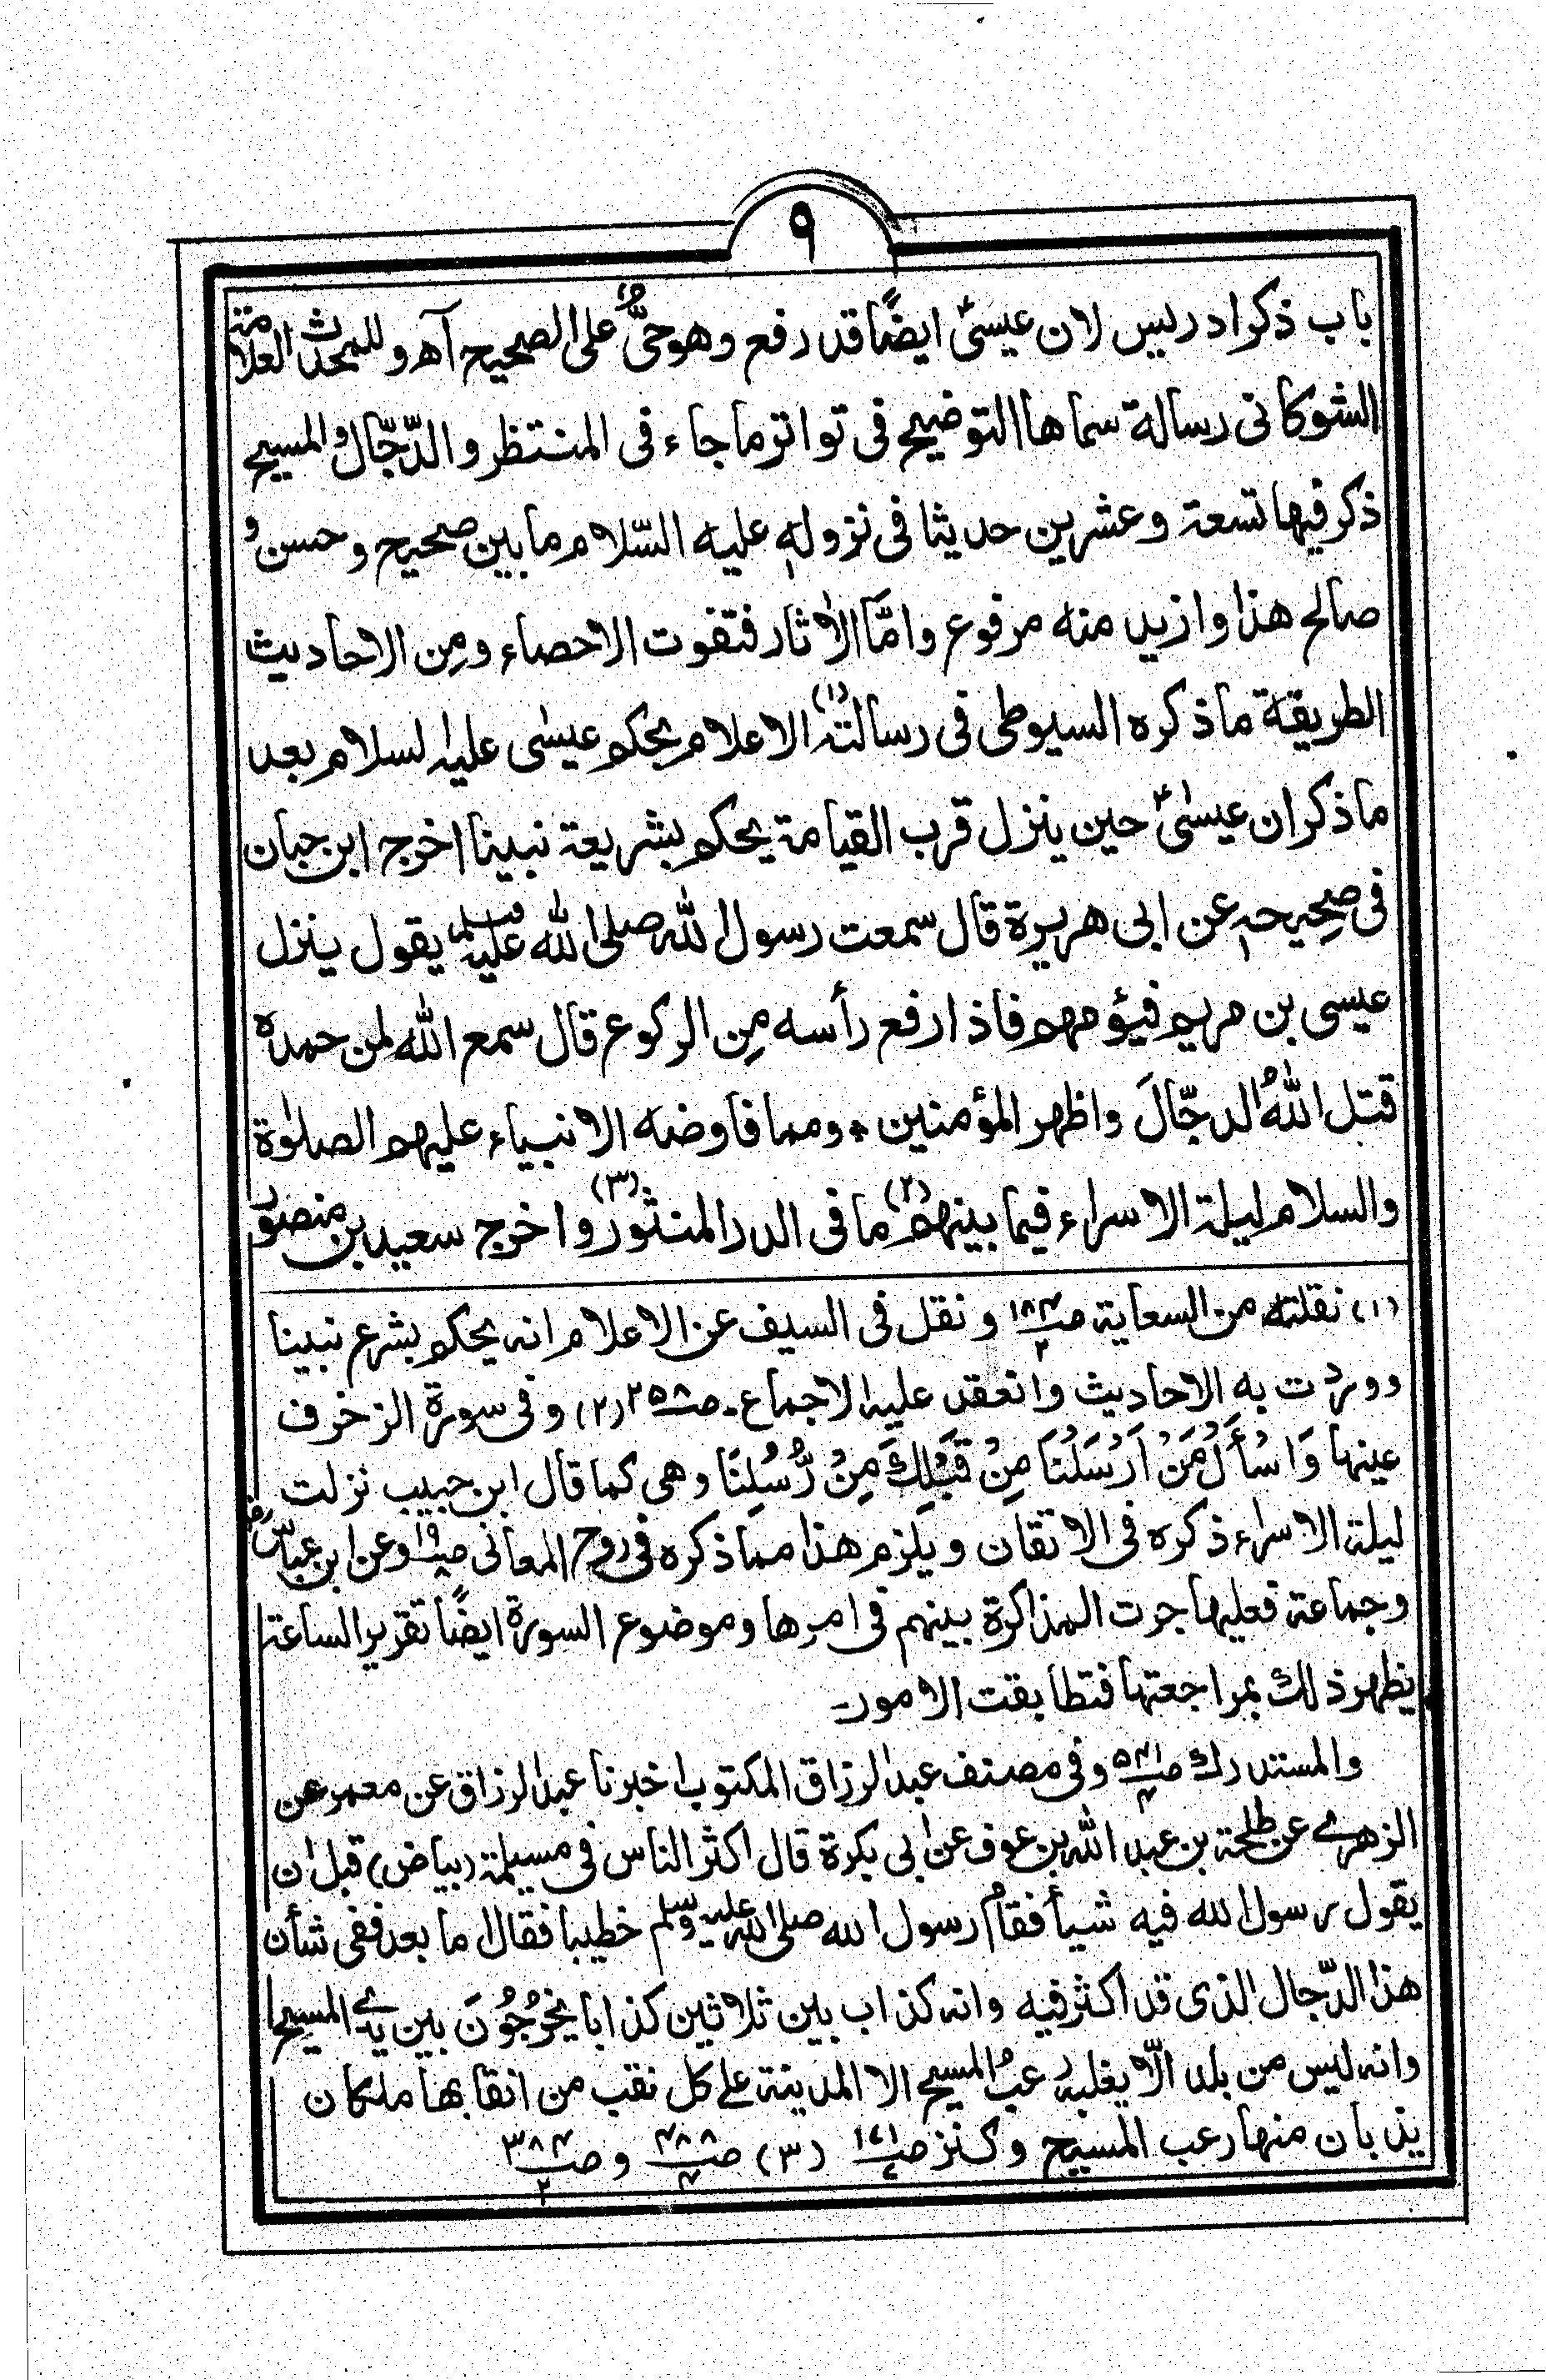 ٩
باب ذكر ادريس لان عيسىٰؑ ايضًا قد رفع وهو حىٌّ على الصحيح آه وللمحدث العلامة
الشوكانى رسالة سماها التوضيح فى تواتر ما جاء فى المنتظر والدّجّال والمسيح
ذكر فيها تسعة وعشرين حديثا فى نزوله عليه السّلام ما بين صحيح وحسن و
صالح هذا وازيد منه مرفوع وامّا الاٰثار فتفوت الاحصاء ومِن الاحاديث
الطريقة ما ذكره السيوطى فى رسالته(١) الاعلام بحكم عيسٰى عليه لسلام بعد
ما ذكر ان عيسٰىؑ حين ينزل قرب القيامة يحكم بشريعة نبينا اخرج ابن حبان
فى صحيحه عن ابى هريرة قال سمعت رسول الله صلى الله عليه وسلم يقول ينزل
عيسى بن مريم فيؤمهم فاذا رفع رأسه مِن الركوع قال سمع الله لمن حمده
قتل اللهُ الدجّالَ واظهر المؤمنين ٭ ومما فاوضه الانبياء عليهم الصلوٰة
والسلام ليلة الاسراء فيما بينهم(٢) ما فى الدر المنثور(٣) واخرج سعيد بن منصور
(١) نقلته من السعاية صـ١٨٤/٢ ونقل فى السيف عن الاعلام انه يحكم بشرع نبينا
ووردت به الاحاديث وانعقد عليه الاجماع ـ صـ٢٥٨ (٢) وفى سورة الزخرف
عينها وَاسْأَلْ مَنْ اَرْسَلْنَا مِنْ قَبْلِكَ مِنْ رُّسُلِنَا وهى كما قال ابن حبيب نزلت
ليلة الاسراء ذكره فى الاتقان ويلزم هذا مما ذكره فى روح المعانى وعن ابن عباسؓ
وجماعة فعليها جرت المذاكرة بينهم فى امرها وموضوع السورة ايضًا تقرير الساعة
يظهر ذلك بمراجعتها فتطابقت الامور ـ
والمستدرك صـ٥٤١/٤ وفى مصنف عبد الرزاق المكتوب اخبرنا عبد الرزاق عن معمر عن
الزهرے عن طلحة بن عبد الله بن عوف عن ابى بكرة قال اكثر الناس فى مسيلمة (بياض) قبل ان
يقول رسول الله فيه شيأ فقام رسول الله صلى الله عليه وسلم خطيبا فقال اما بعد ففى شأن
هذا الدّجال الذى قد اكثر فيه وانه كذاب بين ثلاثين كذابا يخرُجُونَ بين يدے المسيح
وانه ليس من بلد الّا يغلبه رعبُ المسيح الا المدينة علے كل نقب من انقابها ملكان
يذبان منها رعب المسيح وكنز صـ١٧١/٧ (٣) صـ٤٨٨/٤ و صـ٣٨٤/٢